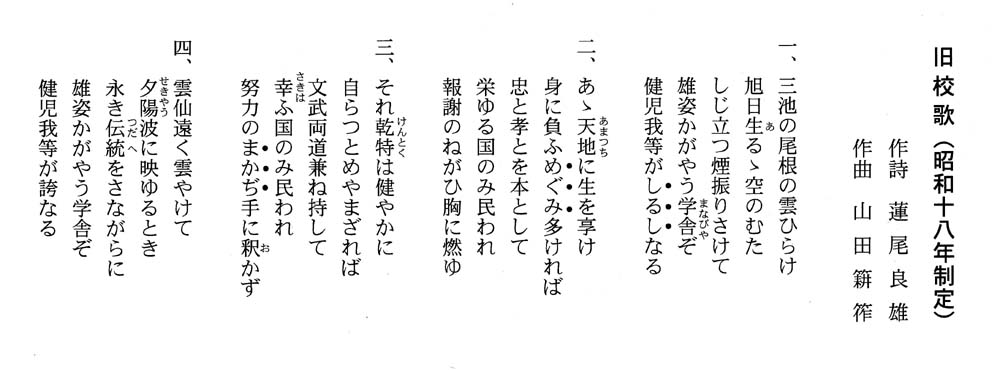 旧校歌（昭和十八年制定）
作詩　蓮尾良雄
作曲　山田耕筰
一、三池の尾根の雲ひらけ
旭日生るゝ空のむた
しじ立つ煙振りさけて
雄姿かがやう学舎ぞ
健児我等がしるしなる
二、あゝ天地に生を享け
身に負ふめぐみ多ければ
忠と孝とを本として
栄ゆる国のみ民われ
報謝のねがひ胸に燃ゆ
三、それ乾特は健やかに
自らつとめやまざれば
文武両道兼ね持して
幸ふ国のみ民われ
努力のまかぢ手に釈かず
四、雲仙遠く雲やけて
夕陽波に映ゆるとき
永き伝統をさながらに
雄姿かがやう学舎ぞ
健児我等が誇なる